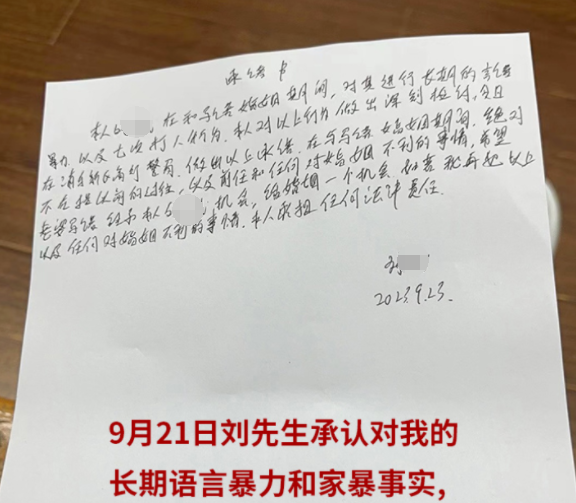 承诺书
本人 在和马锴婚姻期间,对其进行长期的言语
暴力,以及七次打人行为.本人对以上行为做出深刻检讨,今日
在 高灯警局.做出以上承诺.在与马锴婚姻期间.绝对
不在提以前的过往,以及前任和任何对婚姻不利的事情,希望
老婆马锴给和本人 机会,给婚姻一个机会.如若我再犯以上
以及任何对婚姻不利的事情.本人承担任何法律责任.
2023.9.23.
9月21日刘先生承认对我的
长期语言暴力和家暴事实,